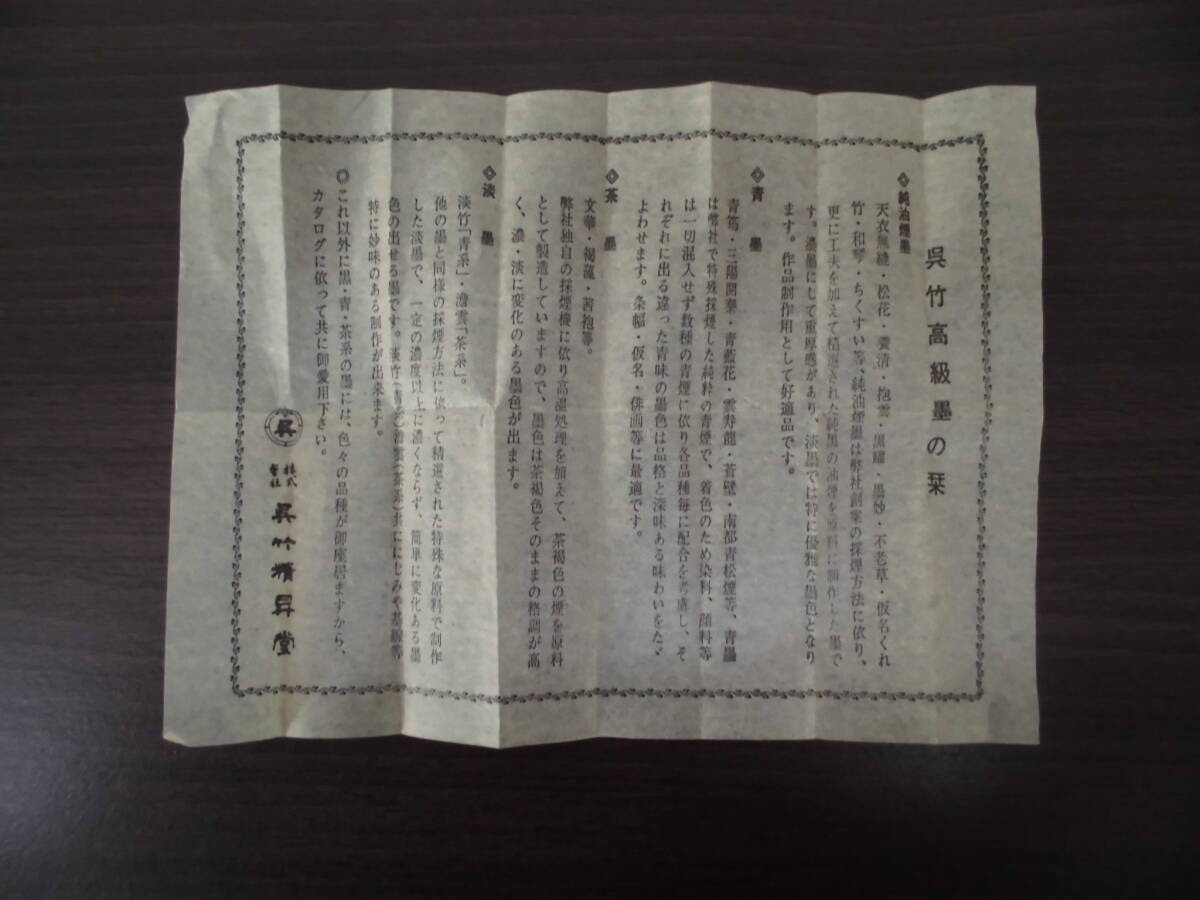 呉竹高級墨の栞
◈純油煙墨
天衣無縫・松花・養清・抱雲・黒耀・墨妙・不老草・仮名くれ
竹・和琴・ちくすい等、純油煙墨は弊社創業の採煙方法に依り、
更に工夫を加えて精選された純黒の油煙を原料に制作した墨で
す。濃墨にして重厚感があり、淡墨では特に優雅な墨色となり
ます。作品制作用として好適品です。
◈青墨
青篶・三陽開泰・青藍花・雲寿龍・蒼壁・南都青松煙等、青墨
は弊社で特殊採煙した純粋の青煙で、着色のため染料、顔料等
は一切混入せず数種の青煙に依り各品種毎に配合を考慮し、そ
れぞれに出る違った青味の墨色は品格と深味ある味わいをたゞ
よわせます。条幅・仮名・俳画等に最適です。
◈茶墨
文華・褐蘊・茜袍等。
弊社独自の採煙機に依り高温処理を加えて、茶褐色の煙を原料
として製造していますので、墨色は茶褐色そのままの格調が高
く、濃・淡に変化のある墨色が出ます。
◈淡墨
淡竹「青系」・澹雲「茶系」。
他の墨と同様の採煙方法に依って精選された特殊な原料で制作
した淡墨で、一定の濃度以上に濃くならず、簡単に変化ある墨
色の出せる墨です。淡竹(青系)澹雲(茶系)共ににじみや基線等
特に妙味のある制作が出来ます。
◎これ以外に黒・青・茶系の墨には、色々の品種が御座居ますから、
カタログに依って共に御愛用下さい。
呉 株式会社 呉竹精昇堂